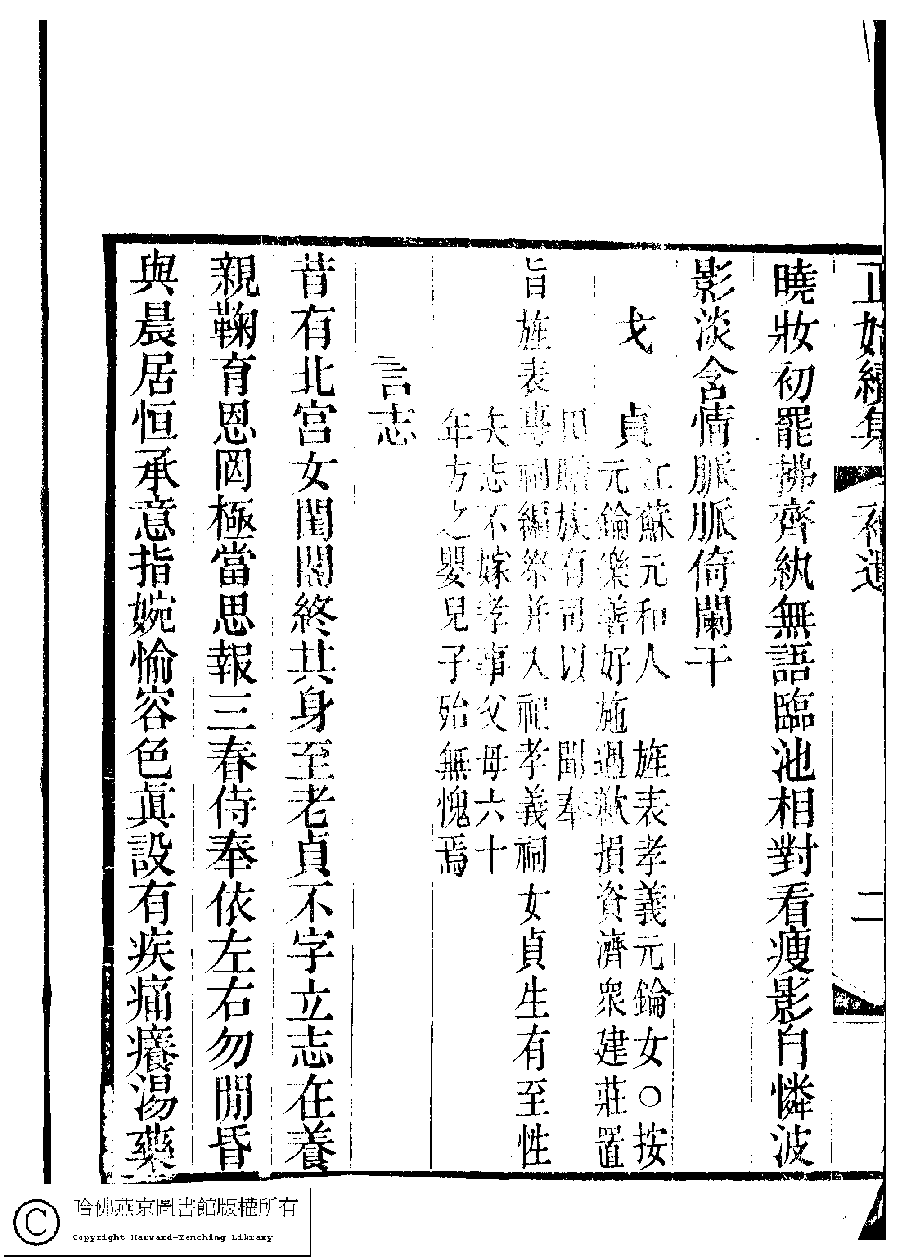 正始續集 補遺 二
曉妝初罷拂齊紈無語臨池相對看瘦影自憐波
影淡含情脈脈倚闌干
戈貞
江蘇元和人 旌表孝義元錀女○按
元錀樂善好施過歉損資濟眾建莊置
田贍族有司以 聞奉
旨旌表專祠編祭并入祀孝義祠女貞生有至性
矢志不嫁孝事父母六十
年方之嬰兒子殆無愧焉
言志
昔有北宮女閨閤終其身至老貞不字立志在養
親鞠育恩罔極當思報三春侍奉依左右勿閒昏
與晨居恒承意指婉愉容色眞設有疾痛癢湯藥
哈佛燕京圖書館版權所有
Copyright Harvard-Yenching Library